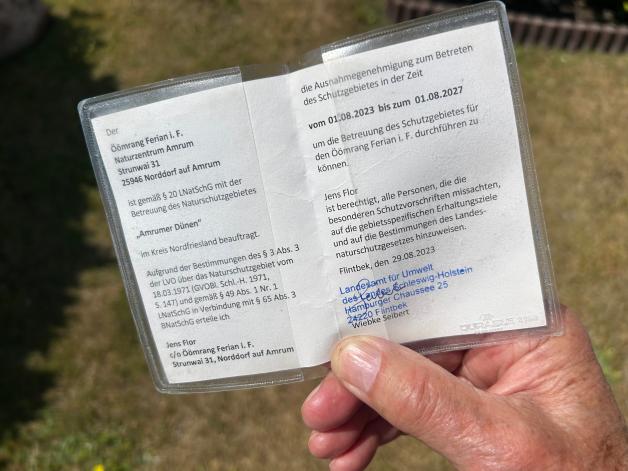 Der
Öömrang Ferian i. F.
Naturzentrum Amrum
Strunwai 31
25946 Norddorf auf Amrum
ist gemäß § 20 LNatSchG mit der
Betreuung des Naturschutzgebietes
„Amrumer Dünen"
im Kreis Nordfriesland beauftragt.
Aufgrund der Bestimmungen des § 3 Abs. 3
der LVO über das Naturschutzgebiet vom
18.03.1971 (GVOBl. Schl.-H. 1971,
S. 147) und gemäß § 49 Abs. 1 Nr. 1
LNatSchG in Verbindung mit § 65 Abs. 3
BNatSchG erteile ich
Jens Flor
c/o Öömrang Ferian i. F.
Strunwai 31, Norddorf auf Amrum
die Ausnahmegenehmigung zum Betreten
des Schutzgebietes in der Zeit
vom 01.08.2023 bis zum 01.08.2027
um die Betreuung des Schutzgebietes für
den Öömrang Ferian i. F. durchführen zu
können.
Jens Flor
ist berechtigt, alle Personen, die die
besonderen Schutzvorschriften missachten,
auf die gebietsspezifischen Erhaltungsziele
und auf die Bestimmungen des Landes-
naturschutzgesetzes hinzuweisen.
Flintbek, den 29.08.2023
Landesamt für Umwelt
des Landes Schleswig-Holstein
Hamburger Chaussee 25
24220 Flintbek
Wiebke Seibert
DURABLE